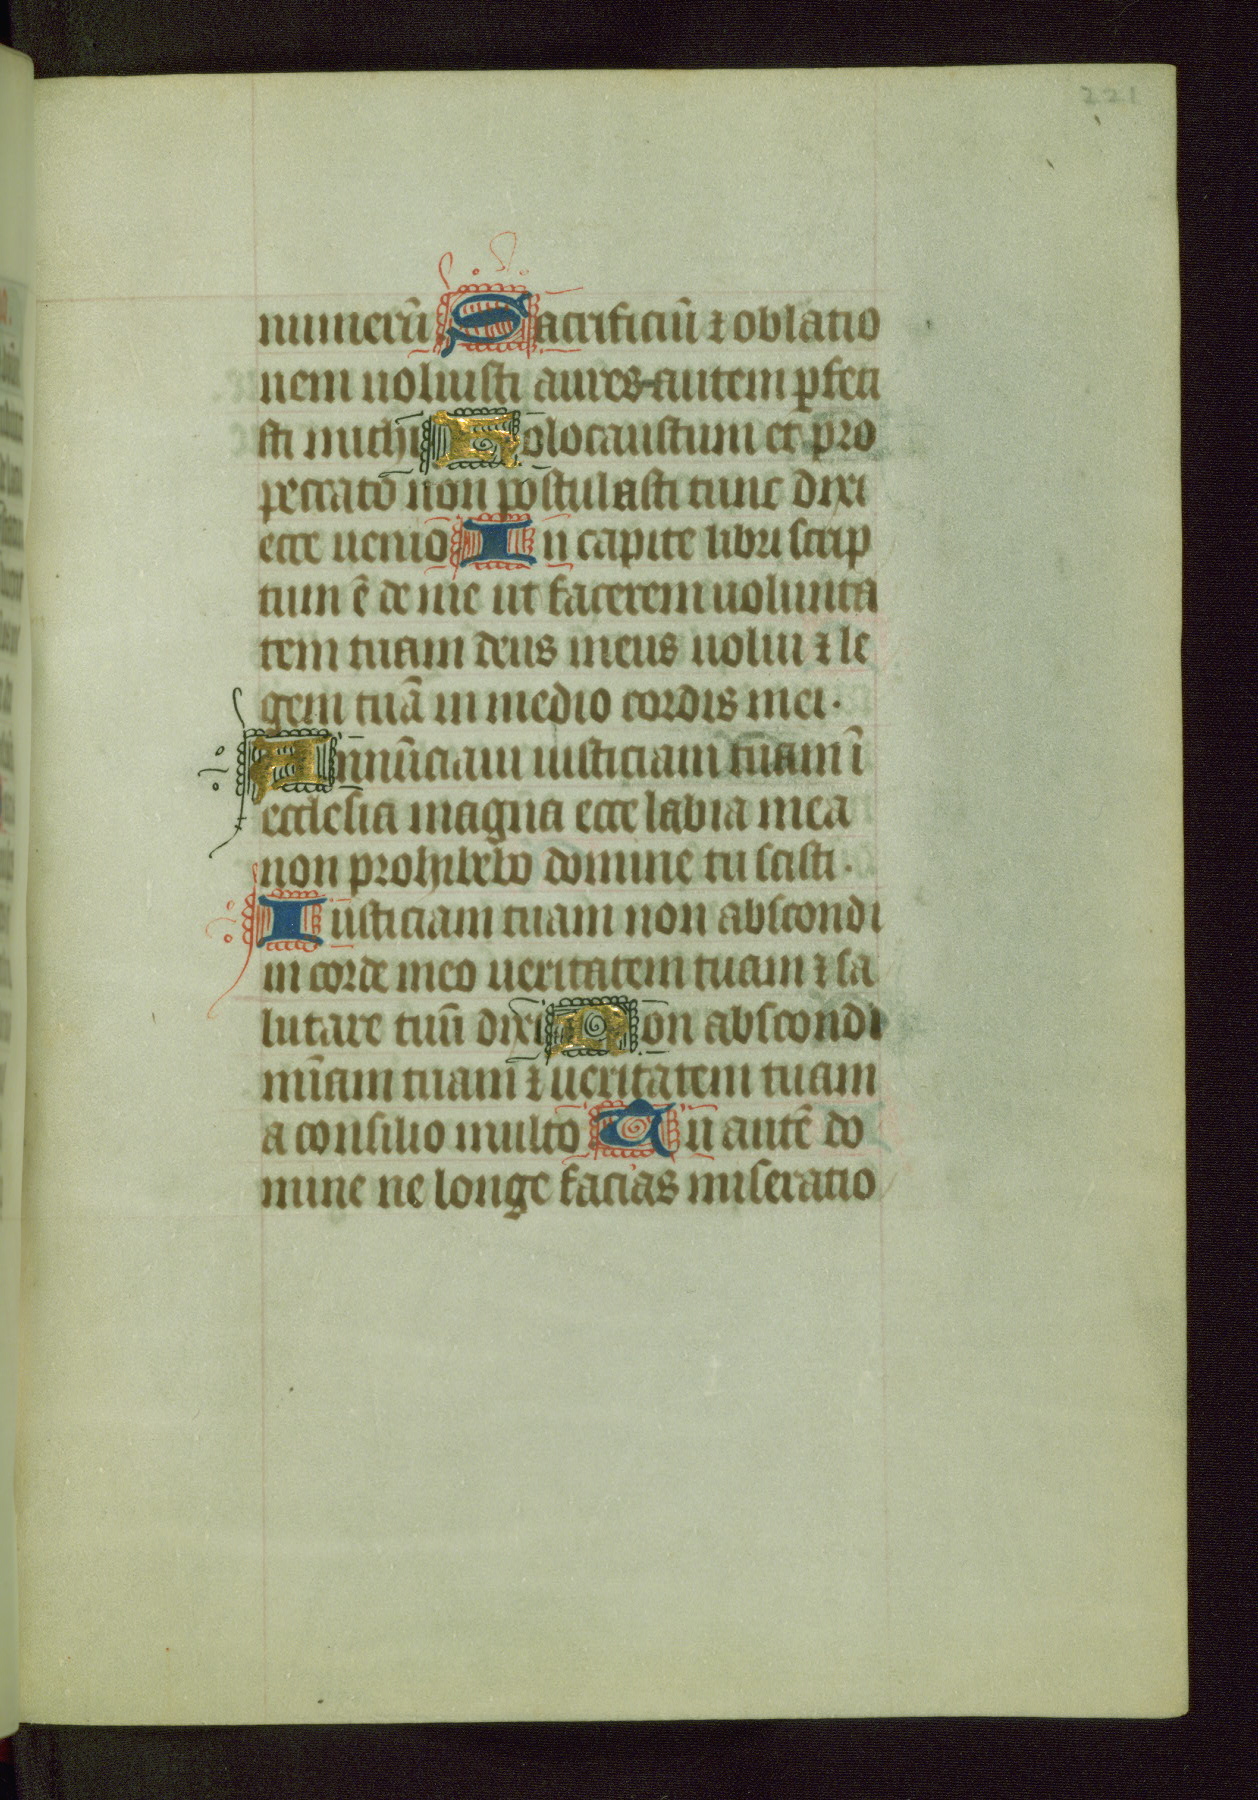 221
numerū Sacrificiū ⁊ oblatio
nem uoluisti aures autem ꝑfeci
sti michi Holocaustum et pro
peccato non postulasti tunc dixi
ecce uenio In capite libri scrip
tum ē de me ut facerem uolunta
tem tuam deus meus uolui ⁊ le
gem tuā in medio cordis mei.
Annūciaui iusticiam tuam ī
ecclesia magna ecce labia mea
non prohibebo domine tu scisti.
Iusticiam tuam non abscondi
in corde meo ueritatem tuam ⁊ sa
lutare tuū dixi Non abscondi
mīam tuam ⁊ ueritatem tuam
a consilio multo Tu autē do
mine ne longe facias miseratio